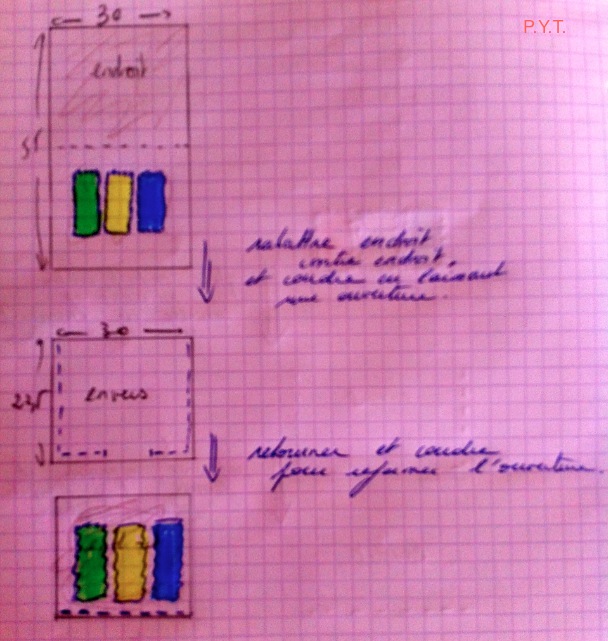 P.Y.T.
30
endroit
rabattre endroit
contre endroit.
et coudre en laissant
une ouverture.
30
envers
retourner et coudre
pour refermer l'ouverture.